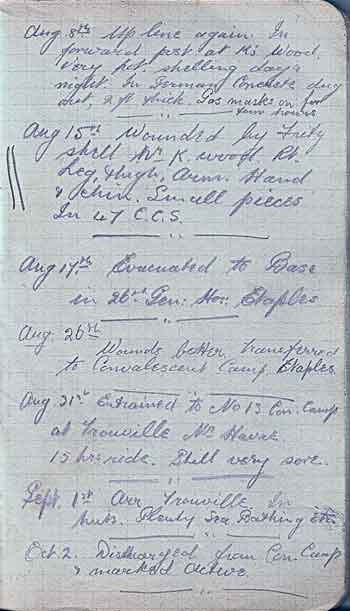 Aug 8th Up line again. In
forward post at K's Wood.
Very hot. Shelling day &
night. In German Concrete dug
out, 2 ft thick. Gas masks on for
hours
Aug 15th Wounded by Fritz
shell Nr K. wood. Rt.
Leg, thigh, Arm. Hand
& chin. Small pieces
In 47 C.C.S.
Aug 17th Evacuated to Base
in 26th Gen. Hos. Etaples
Aug. 26th
Wounds better transferred
to Convalescent Camp, Etaples
Aug 31st Entrained to No 13 Con. Camp
at Trouville Nr Havre
15 hrs ride. Still very sore.
Sept. 1st Arr Trouville In
huts. Plenty Sea Bathing etc.
Oct. 2. Discharged from Con. Camp
& marked Active.